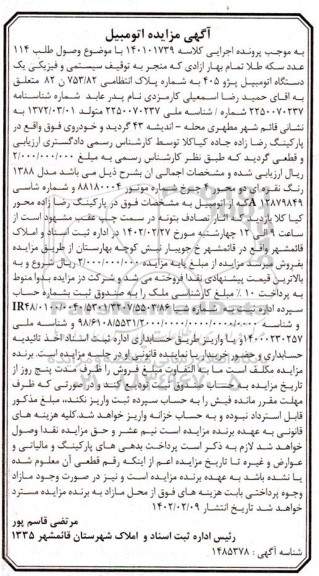 آگهی مزایده اتومبیل
به موجب پرونده اجرایی کلاسه ۱۴۰۱۰۱۷۳۹ با موضوع وصول طلب ۱۱۴
عدد سکه طلا تمام بهار ازادی که منجر به توقیف سیستمی و فیزیکی یک
دستگاه اتومبیل پژو ۴۰۵ به شماره پلاک انتظامی ۷۵۳/۸۲ ن ۸۲ متعلق
به اقای حمید رضا اسمعیلی کارمزدی نام پدر عابد شماره شناسنامه
۲۲۵۰۰۷۰۲۳۷ شماره / شناسه ملی ۲۲۵۰۰۷۰۲۳۷ متولد ۱۳۷۲/۰۳/۰۱ به
نشانی قائم شهر مطهری محله - اندیشه ۴۳ گردید و خودروی فوق واقع در
پارکینگ رضا زاده جاده کیاکلا توسط کارشناس رسمی دادگستری ارزیابی
و قطعی گردید که طبق نظر کارشناس رسمی به مبلغ ۲/۰۰۰/۰۰۰/۰۰۰
ریال ارزیابی شده و مشخصات اجمالی ان بشرح ذیل می باشد مدل ۱۳۸۸
رنگ نقره ای دو محور چهار چرخ شماره موتور ۸۸۱۸۰۰۰۴ و شماره شاسی
۱۲۸۷۹۸۴۹ A که از اتومبیل به مشخصات فوق در پارکینگ رضا زاده محور
کیا کلا بازدید اثار تصادف بتونه در سمت چپ عقب مشهود است از
ساعت ۹ الی ۱۲ چهارشنبه مورخ ۱۴۰۲/۰۲/۲۷ در اداره ثبت اسناد و املاک
قائمشهر واقع در قائمشهر خ جویبار نبش کوچه بهارستان از طریق مزایده
بفروش میرسد مزایده از مبلغ پایه مزایده ۲/۰۰۰/۰۰۰/۰۰۰ ریال شروع و به
بالاترین قیمت پیشنهادی نقدا فروخته می شد و شرکت در مزایده بدوا منوط
به پرداخت ۱۰ ٪ مبلغ کارشناسی ملک را به صندوق ثبت بشماره حساب
سپرده اداره ثبت به شماره شبا
و شناسه و شناسه ملی
۱۴۰۰۰۲۳۰۲۵۷ واریز طریق حسابداری اداره ثبت اسناد اخذ تائیدیه
حسابداری و حضور خریدار یا نماینده قانونی او در جلسه مزایده است. برنده
مزایده مکلف است ما به التفاوت مبلغ فروش را ظرف مدت پنج روز از
تاریخ مزایده به حساب صندوق ثبت تودیع کند و درصورتی که ظرف
مهلت مقرر مانده فیش را به حساب سپرده ثبت واریز نکند، مبلغ مذکور
قابل استرداد نبوده و به حساب خزانه واریز خواهد شد. کلیه هزینه های
قانونی به عهده برنده مزایده است نیم عشر و حق مزایده نقدا وصول
خواهد شد لازم به ذکر است پرداخت بدهی های پارکینگ و مالیاتی و
عوارض و غیره تا تاریخ مزایده اعم از اینکه رقم قطعی آن معلوم شده
یا نشده باشد به عهده برنده مزایده است و نیز در صورت وجود مازاد
وجوه پرداختی بابت هزینه های فوق از محل مازاد به برنده مزایده مسترد
خواهد شد تاریخ انتشار ۱۴۰۲/۰۲/۰۹
مرتضی قاسم پور
رئیس اداره ثبت اسناد و املاک شهرستان قائمشهر ۱۳۳۵
شناسه آگهی : ۱۴۸۵۳۷۸